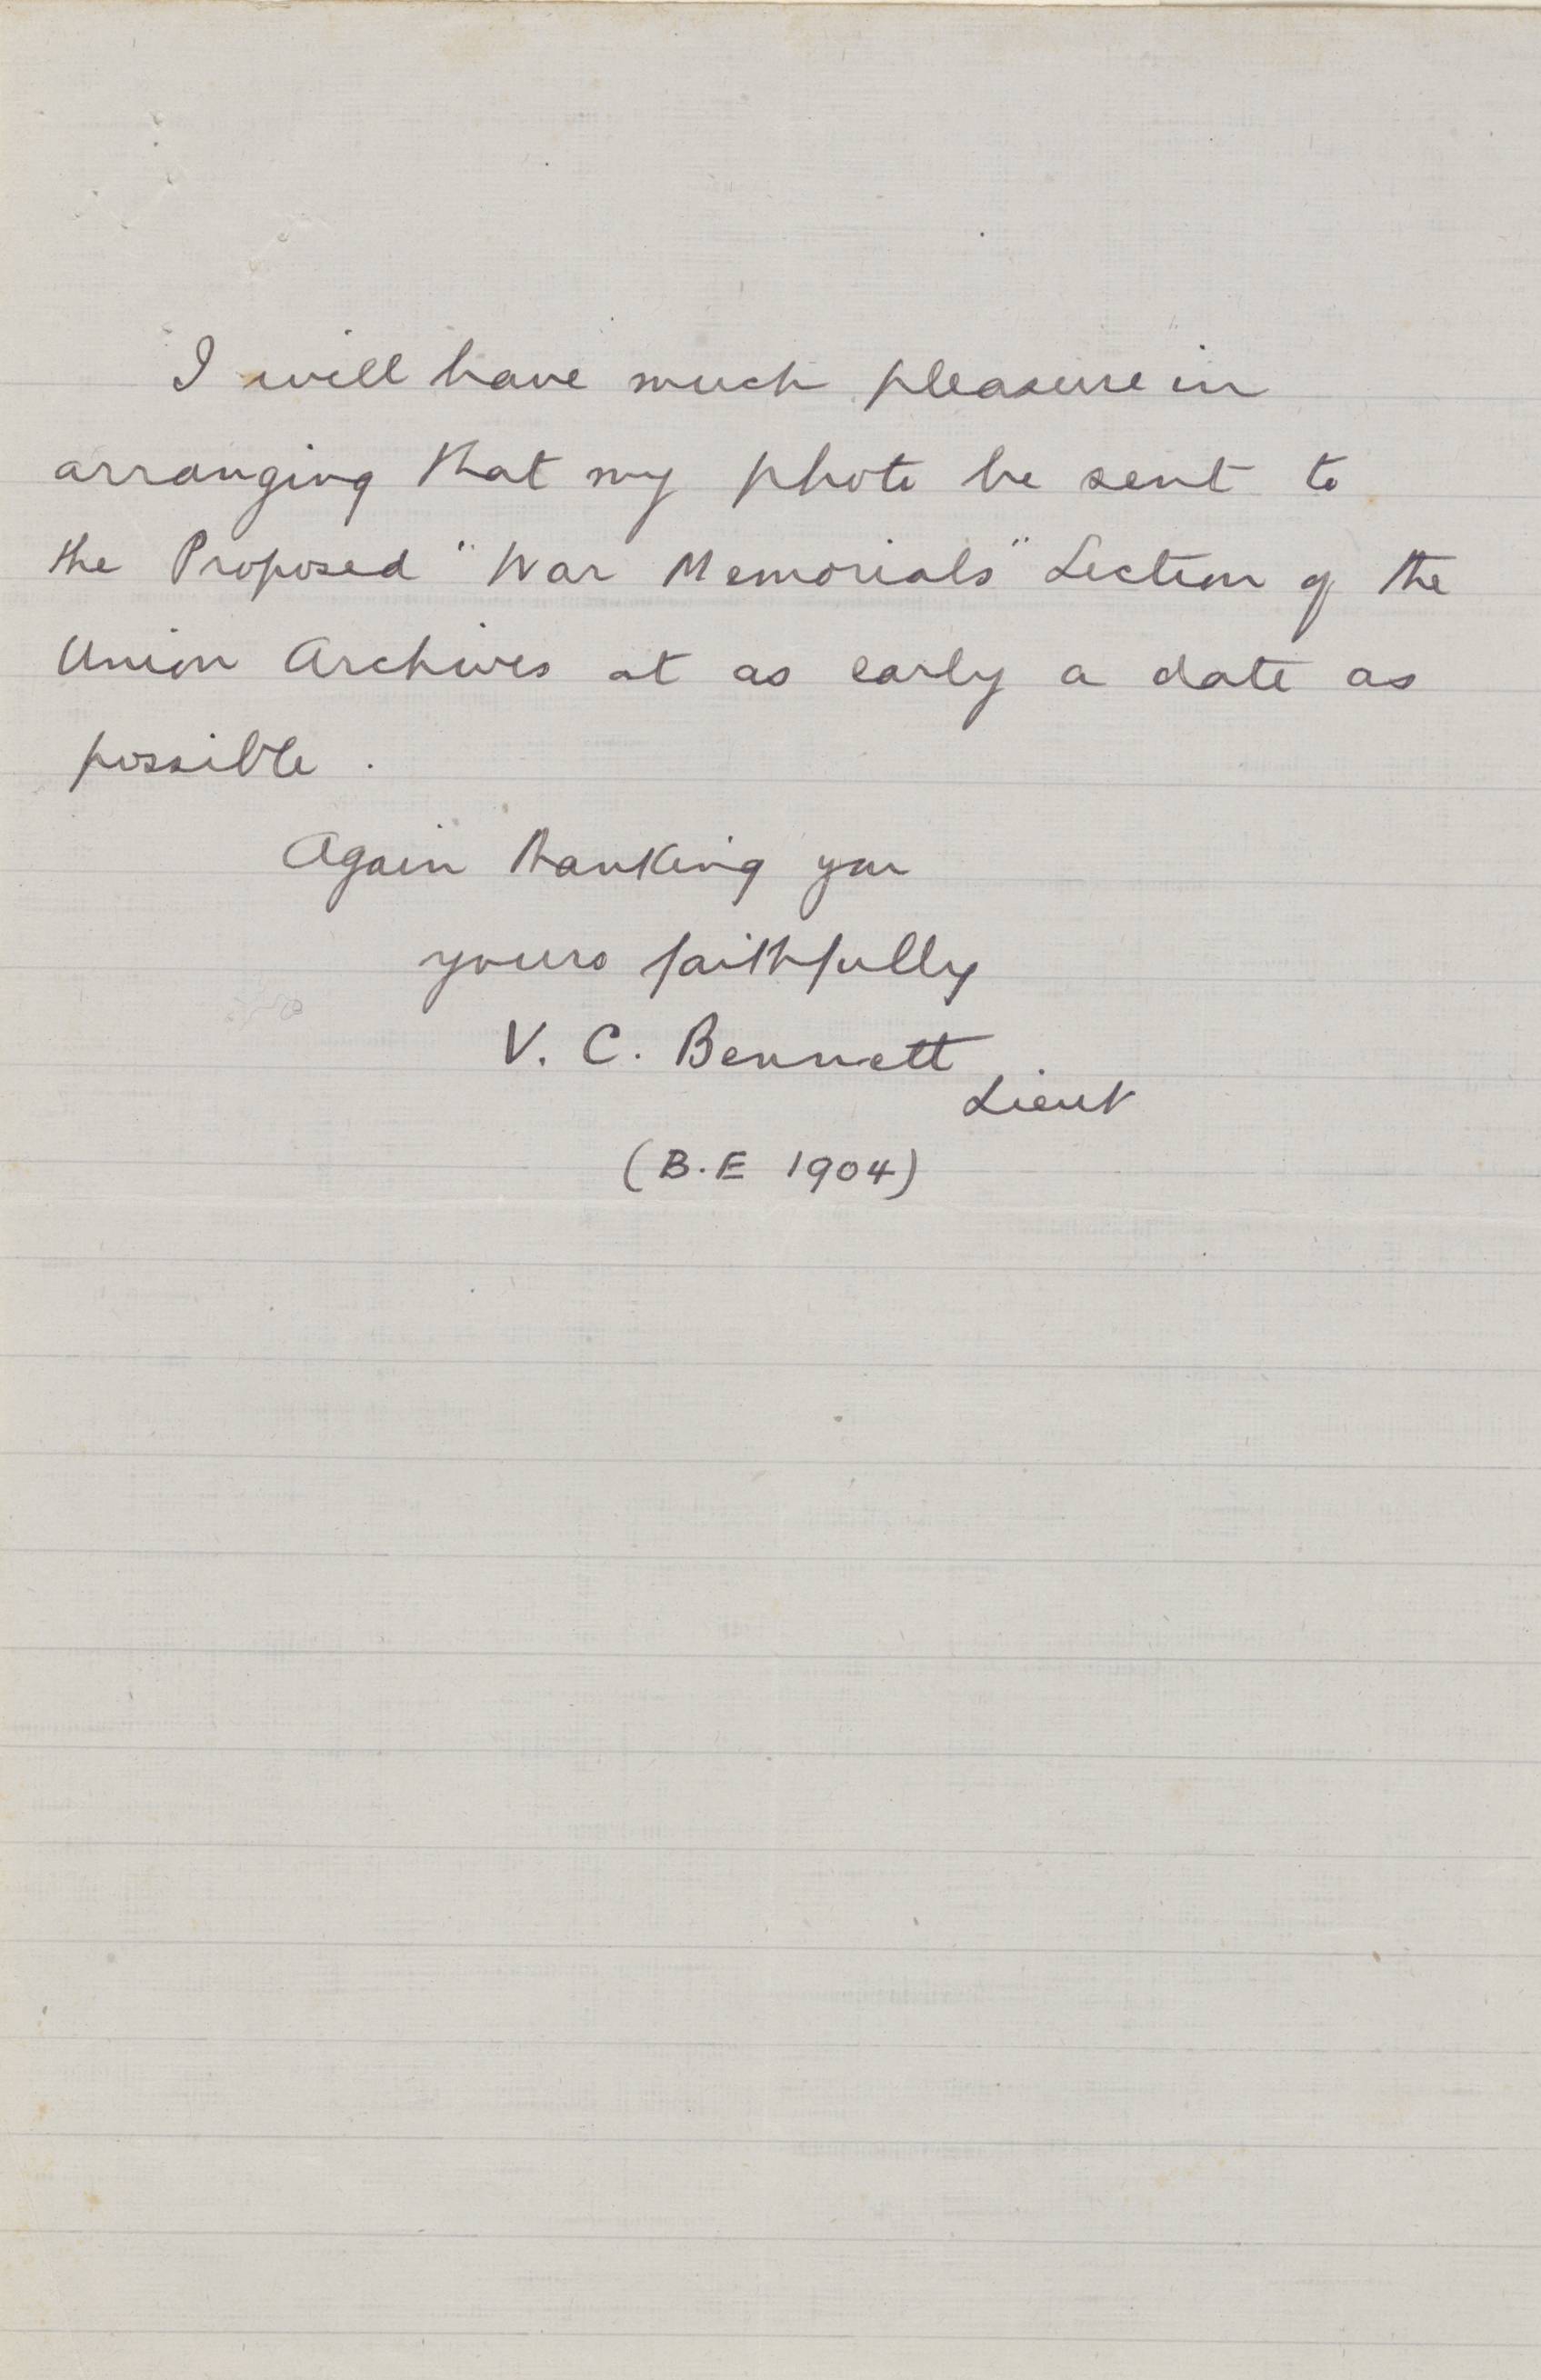 I will have much pleasure in
arranging that my photo be sent to
the Proposed "War Memorials" Section of the
Union Archives at as early a date as
possible .
Again thanking you
yours faithfully
V. C. Bennett
Lieut
(B.E 1904)